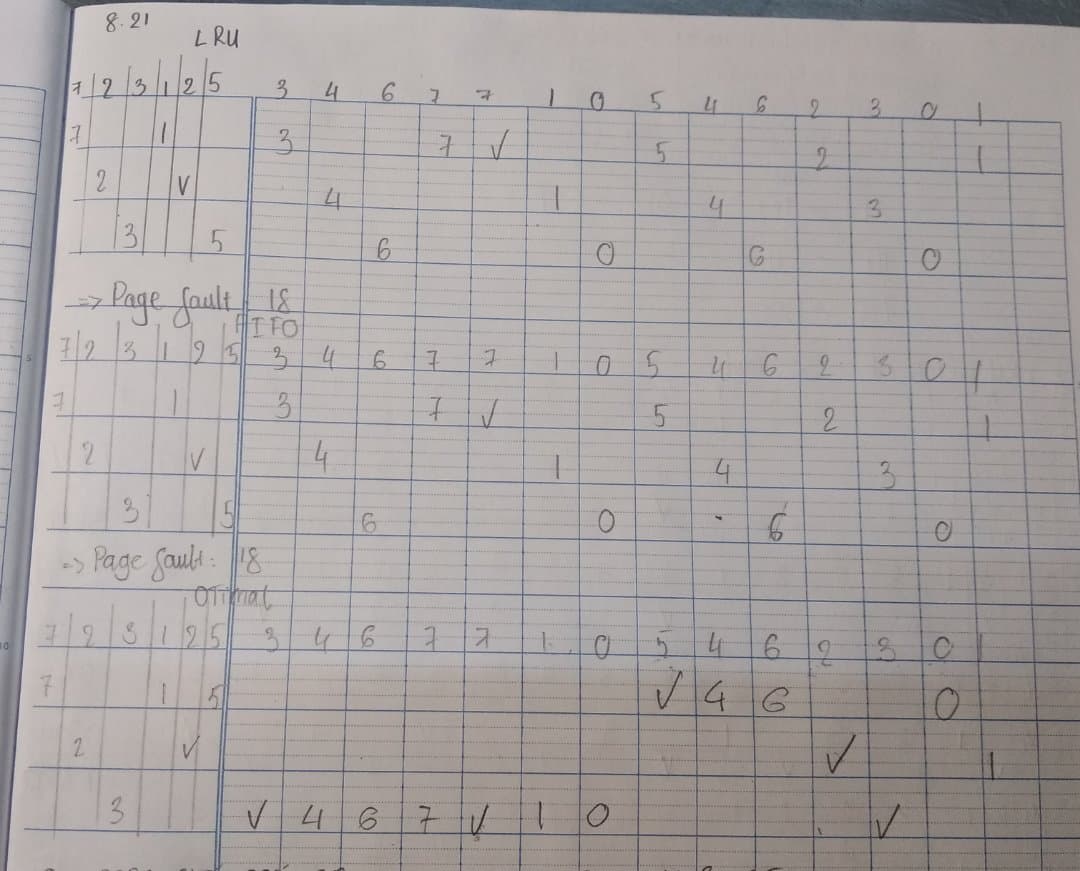 8.21
LRU
7 2 3 1 2 5 3 4 6 7 7 1 0 5 4 6 2 3 0 1
7 1 3 7 ✓ 5 2 1
2 ✓ 4 1 4 3
3 5 6 0 6 0
=> Page fault 18
FIFO
7 2 3 1 2 5 3 4 6 7 7 1 0 5 4 6 2 3 0 1
7 1 3 7 ✓ 5 2 1
2 ✓ 4 1 4 3
3 5 6 0 6 0
=> Page fault: 18
OTimal
7 2 3 1 2 5 3 4 6 7 7 1 0 5 4 6 2 3 0 1
7 1 5 ✓ 4 6 0
2 ✓ ✓ 1
3 ✓ 4 6 7 ✓ 1 0 ✓